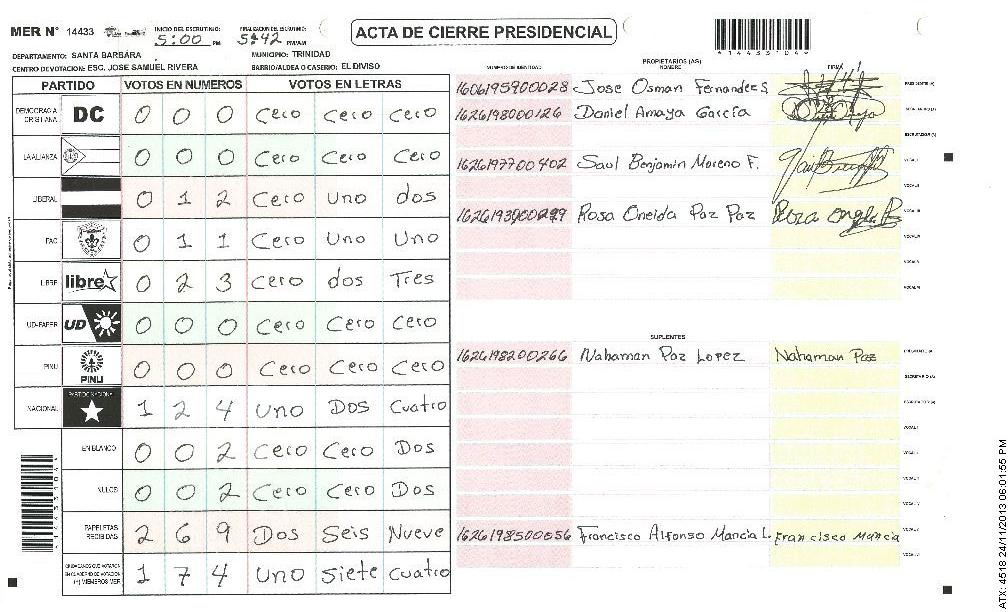 MER N° 14433 INICIO DEL ESCRUTINIO: 5:00 PM FINALIZACION DEL ESCRUTINIO: 5:42 PM/AM
ACTA DE CIERRE PRESIDENCIAL
DEPARTAMENTO: SANTA BARBARA MUNICIPIO: TRINIDAD
CENTRO DE VOTACION: ESC. JOSE SAMUEL RIVERA BARRIO/ALDEA O CASERIO: EL DIVISO
PARTIDO VOTOS EN NUMEROS VOTOS EN LETRAS
DEMOCRACIA CRISTIANA DC 0 0 0 Cero Cero Cero
LA ALIANZA 0 0 0 Cero Cero Cero
LIBERAL 0 1 2 Cero Uno dos
PAC 0 1 1 Cero Uno Uno
LIBRE libre 0 2 3 Cero dos Tres
UD-FAPER UD 0 0 0 Cero Cero Cero
PINU PINU 0 0 0 Cero Cero Cero
NACIONAL PARTIDO NACIONAL 1 2 4 Uno Dos Cuatro
EN BLANCO 0 0 2 Cero Cero Dos
NULOS 0 0 2 Cero Cero Dos
PAPELETAS RECIBIDAS 2 6 9 Dos Seis Nueve
CIUDADANOS QUE VOTARON EN CUADERNO DE VOTACION (+) MIEMBROS MER 1 7 4 Uno Siete Cuatro
PROPIETARIOS (AS)
NÚMERO DE IDENTIDAD NOMBRE FIRMA
1606195900028 Jose Osman Fernandes PRESIDENTE (A)
1626198000126 Daniel Amaya García SECRETARIO (A)
ESCRUTADOR (A)
1626197700402 Saul Benjamin Moreno F. VOCAL I
VOCAL II
Rosa Oneida Paz Paz VOCAL III
VOCAL IV
VOCAL V
VOCAL VI
SUPLENTES
1626198200266 Nahaman Paz Lopez Nahaman Paz PRESIDENTE (A)
SECRETARIO (A)
ESCRUTADOR (A)
VOCAL I
VOCAL II
VOCAL III
VOCAL IV
VOCAL V
1626198500056 Francisco Alfonso Mancia L. Francisco Mancia
ATX: 4518 24/11/2013 06:01:55 PM